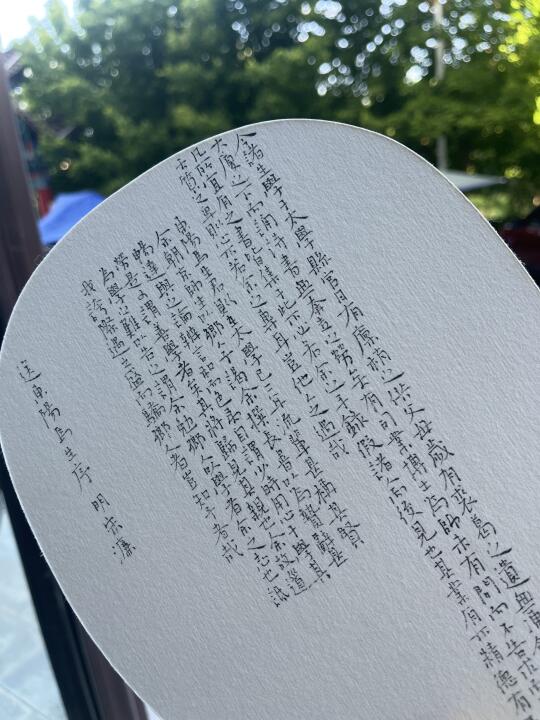 今諸生學于太學縣官日有廩稍之供父母歲有裘葛之遺無凍
大廈之下而誦詩書無奔走之勞矣有司業博士為師未有問而不告求而
凡所宜有之書皆集于此不必若余之手錄假諸人而後見也其業有不精德有
天質之卑則心不若余之專耳豈他人之過哉
東陽馬生君則在太學已二年流輩甚稱其賢
余朝京師生以鄉人子謁余撰長書以為贄辭甚
暢達與之論辨言和而色夷自謂少時用心于學甚
勞是可謂善學者矣其將歸見其親也余故道
為學之難以告之謂余勉鄉人以學者余之志也詆
我誇際遇之盛而驕鄉人者豈知予者哉
送東陽馬生序 明宋濂